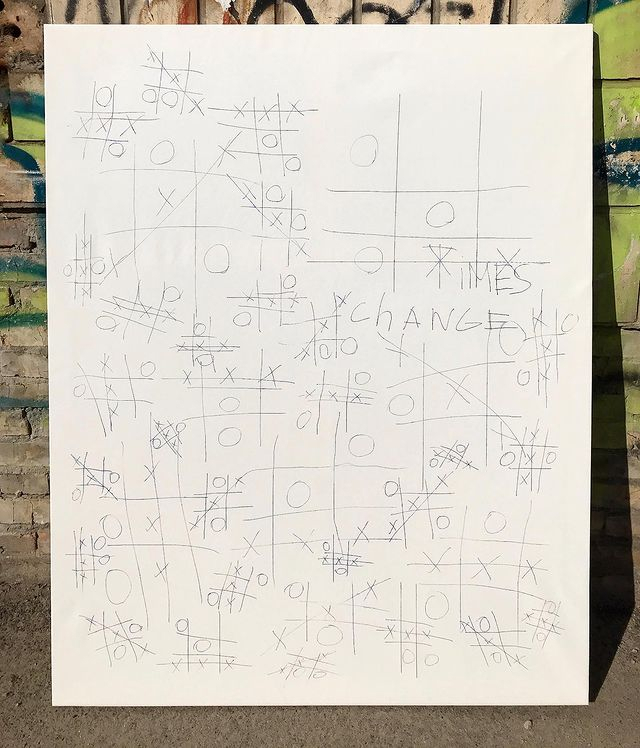 TIMES
ChANGE